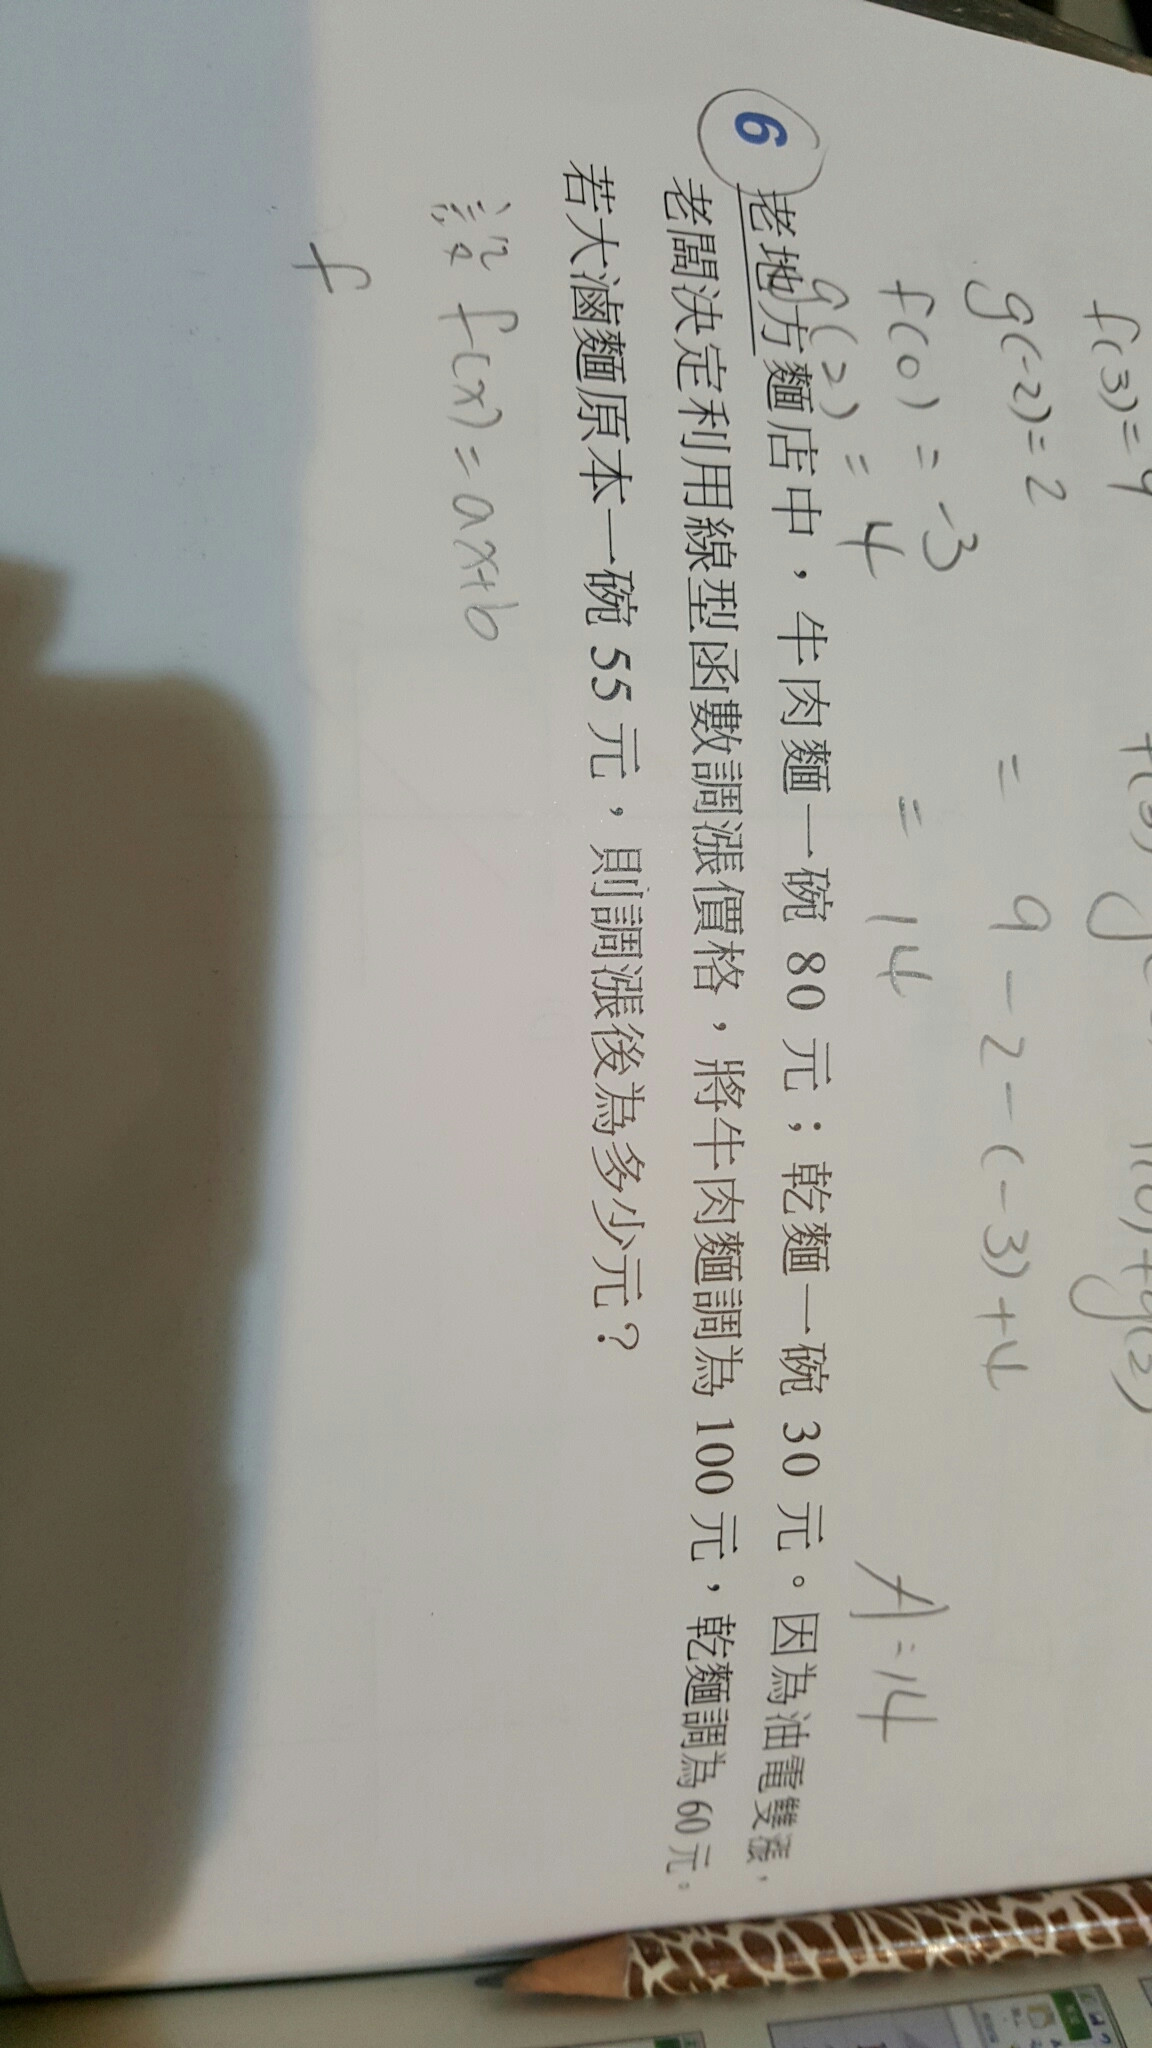 f(3)=9
g(-2)=2
= 9-2-(-3)+4
f(0)=-3
= 14
A=14
g(2)=4
6 老地方麵店中，牛肉麵一碗 80 元；乾麵一碗 30 元。因為油電雙漲，
老闆決定利用線型函數調漲價格，將牛肉麵調為 100 元，乾麵調為 60 元。
若大滷麵原本一碗 55 元，則調漲後為多少元？
設 f(x)=ax+b
f